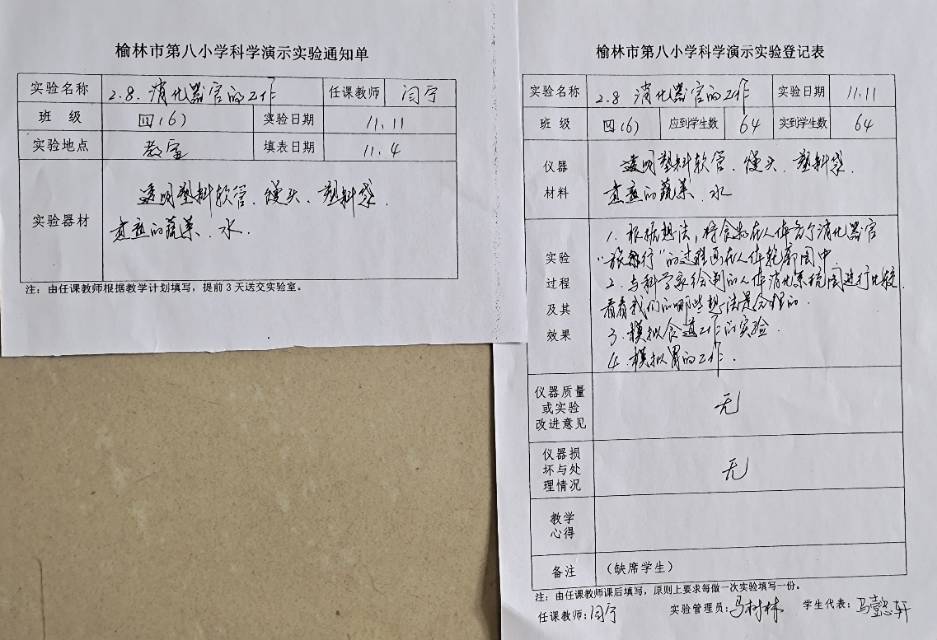 榆林市第八小学科学演示实验通知单
实验名称 2.8.消化器官的工作 任课教师 闫宁
班 级 四(6) 实验日期 11.11
实验地点 教室 填表日期 11.4
实验器材 透明塑料软管、馒头、塑料袋、
煮熟的蔬菜、水.
注：由任课教师根据教学计划填写，提前3天送交实验室。
榆林市第八小学科学演示实验登记表
实验名称 2.8 消化器官的工作 实验日期 11.11
班 级 四(6) 应到学生数 64 实到学生数 64
仪器 透明塑料软管、馒头、塑料袋、
材料 煮熟的蔬菜、水
1. 根据想法，将食物在人体各个消化器官
实验 “旅行”的过程画在人体轮廓图中
过程 2. 与科学家绘制的人体消化系统图进行比较
及其 看看我们的哪些想法是合理的.
3. 模拟食道工作的实验
效果
4. 模拟胃的工作.
仪器质量
或实验 无
改进意见
仪器损
坏与处 无
理情况
教学
心得
备注 （缺席学生）
注：由任课教师课后填写，原则上要求每做一次实验填写一份。
任课教师：闫宁 实验管理员：马树林 学生代表：马懿轩